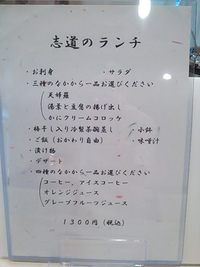 志道のランチ
・お刺身　・サラダ
・三種のなかから一品お選びください
天婦羅
湯葉と豆腐の揚げ出し
かにクリームコロッケ
・梅干し入り冷製茶碗蒸し　・小鉢
・ご飯（おかわり自由）　・味噌汁
・漬け物
・デザート
・四種のなかから一品お選びください
コーヒー、アイスコーヒー
オレンジジュース
グレープフルーツジュース
1300円（税込）